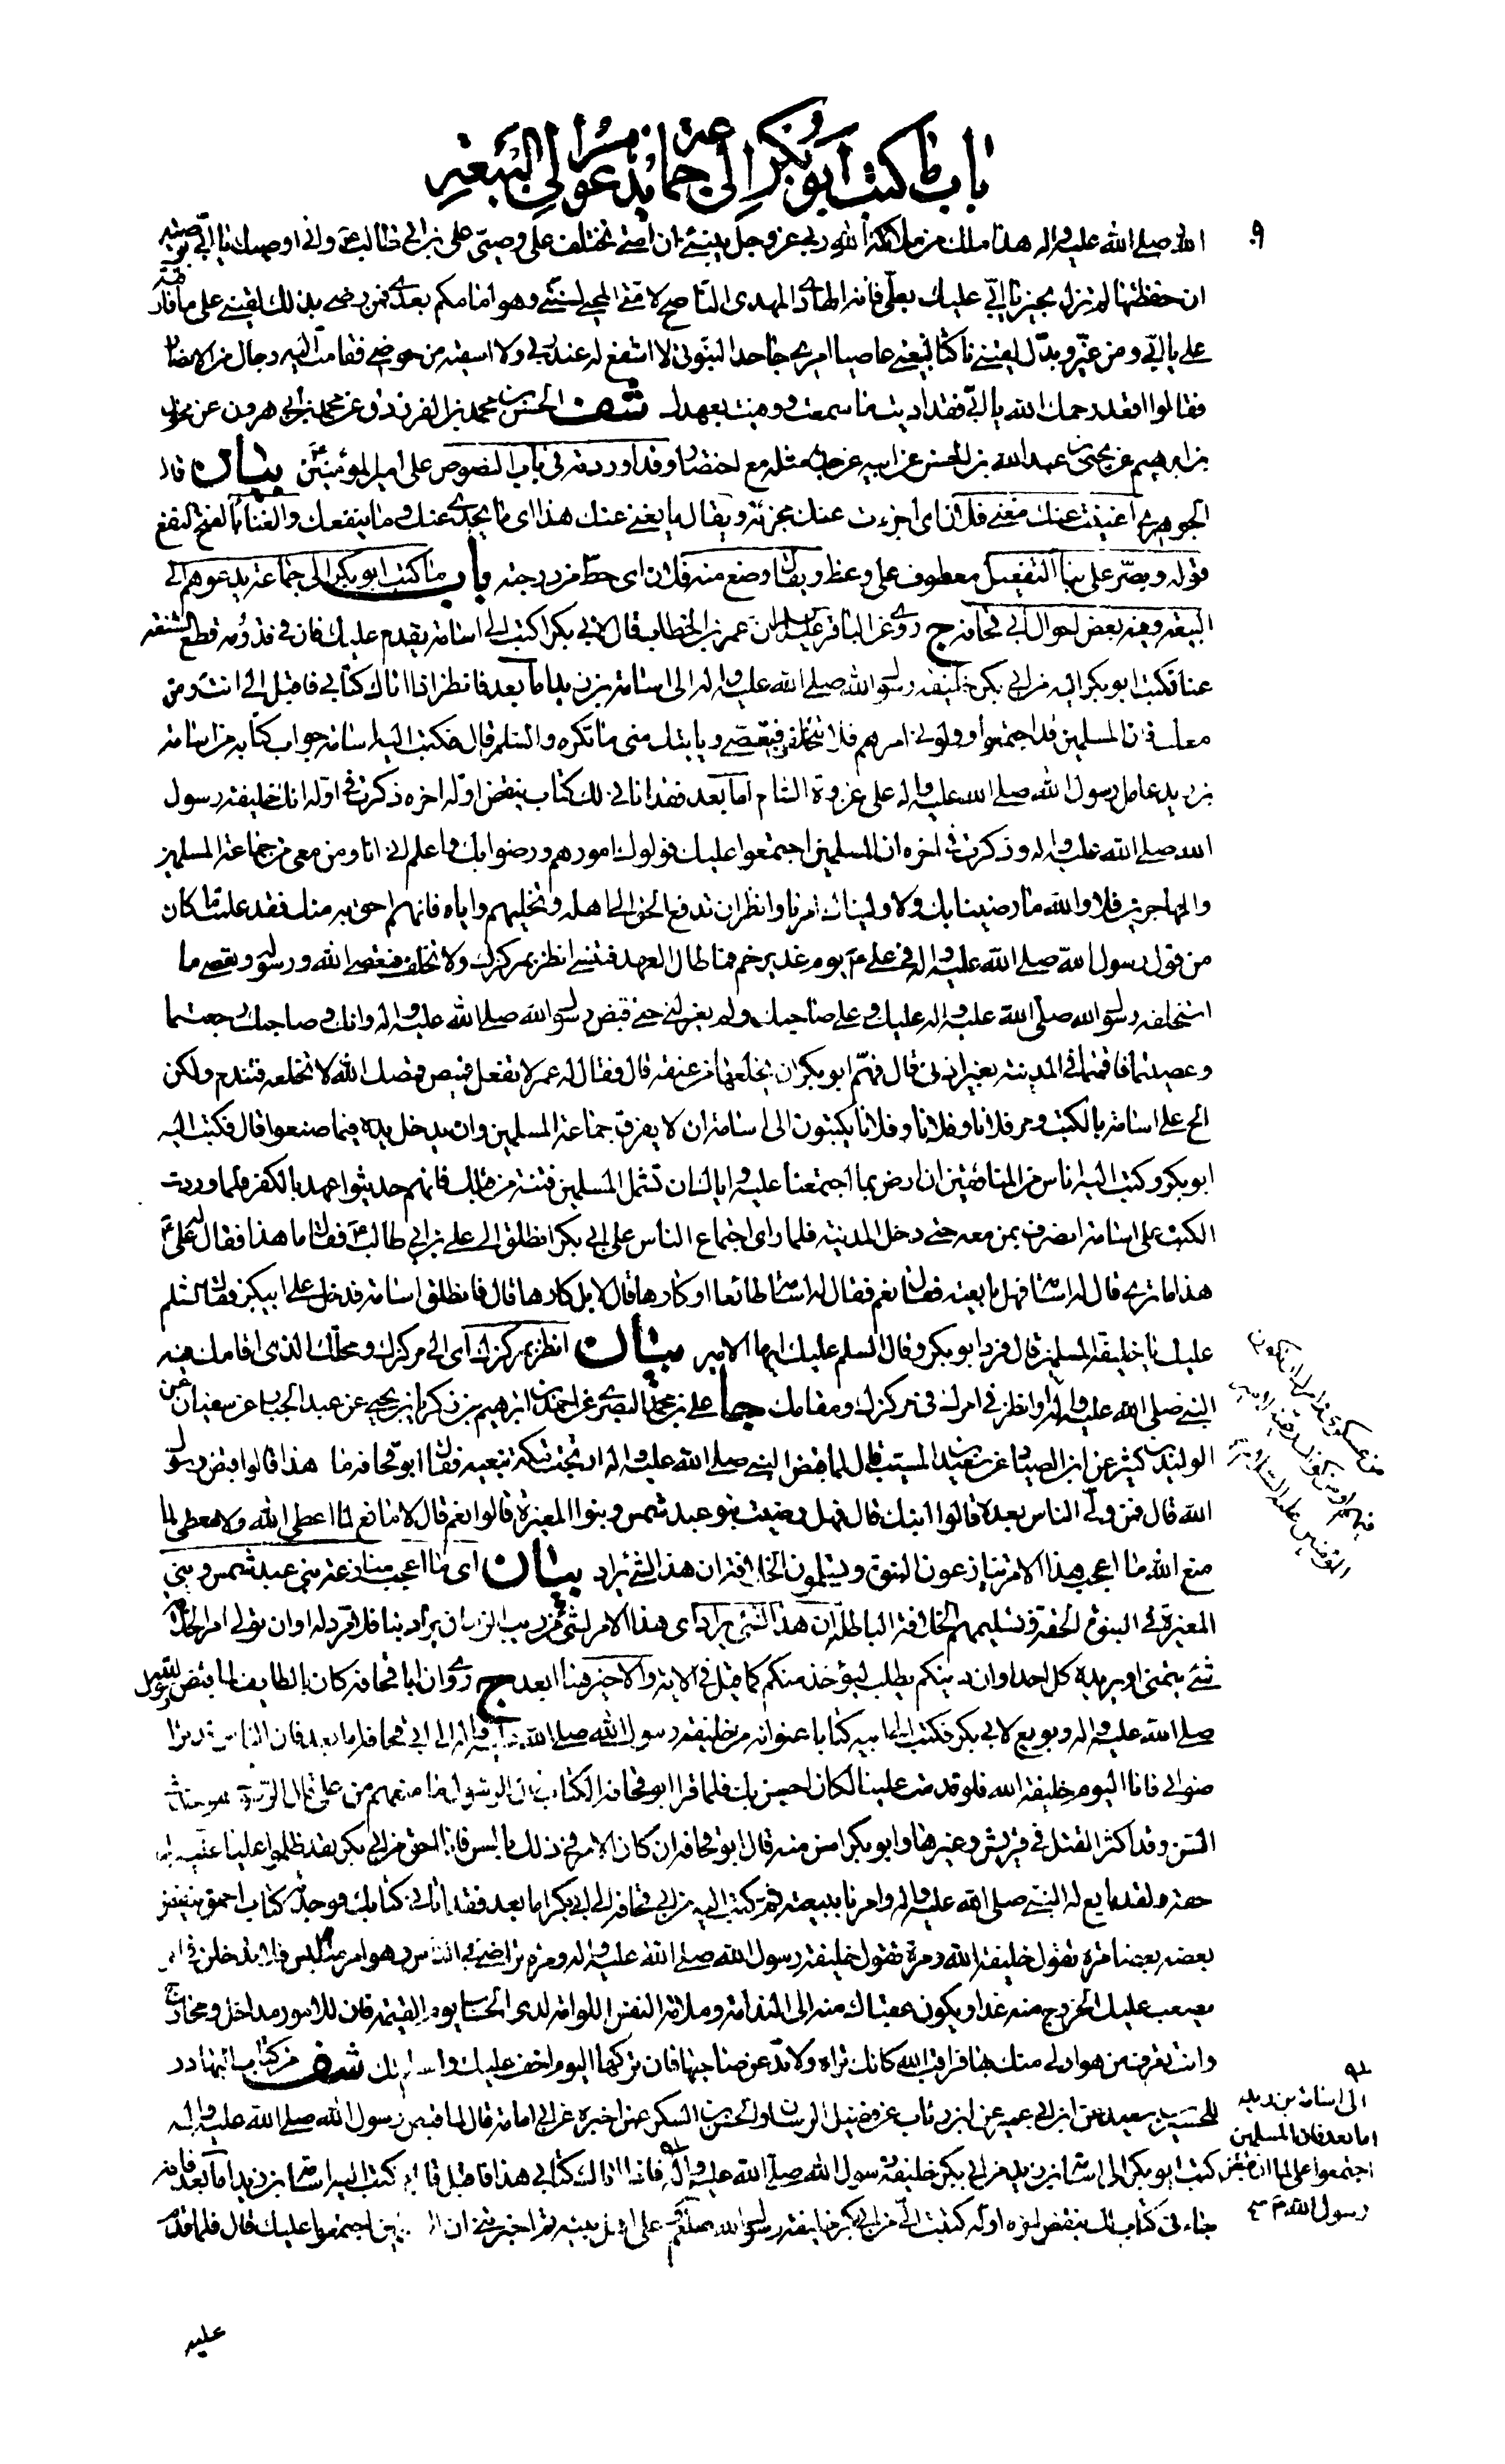 باب ما كتب ابو بكر الى جماعة يدعوهم الى البيعة
الله صلى الله عليه واله هذا ملك من ملائكة الله ربى عز وجل ينبئنى ان امتى تختلف على وصيى على بن ابى طالب ع وانى اوصيك يا ابى بوصية
ان حفظتها لم تزل بخير يا ابى عليك بعلى فانه الهادى المهدى الناصح لامتى المحيى لسنتى وهو امامكم بعدى فمن رضى بذلك لقينى على ما فارقته
عليه يا ابى ومن غير وبدل لقينى ناكثا لبيعتى عاصيا امرى جاحدا لنبوتى لا اشفع له عند ربى ولا اسقيه من حوضى فقامت اليه رجال من الانصار
فقالوا اقعد رحمك الله يا ابى فقد اديت ما سمعت ووفيت بعهدك شف الحسن بن محمد بن الفرزدق عن محمد بن ابى هرون عن مخول
بن ابرهيم عن يحيى بن عبد الله بن الحسن عن ابيه عن جده مثله مع اختصار وقد اوردته فى باب النصوص على امير المؤمنين ع بيان قال
الجوهرى اغنيت عنك مغنى فلان اى اجزءت عنك مجزئه ويقال ما يغنى عنك هذا اى ما يجدى عنك وما ينفعك والغناء بالفتح النفع
قوله وبصر على بناء التفعيل معطوف على وعظ ويقال وضع منه فلان اى حط من درجته باب ما كتب ابو بكر الى جماعة يدعوهم الى
البيعة وفيه بعض احوال ابى قحافة ج روى عن الباقر عليه السلام ان عمر بن الخطاب قال لابى بكر اكتب الى اسامة يقدم عليك فان فى قدومه قطع الشنعة
عنا فكتب ابو بكر اليه من ابى بكر خليفة رسول الله صلى الله عليه واله الى اسامة بن زيد اما بعد فانظر اذا اتاك كتابى فاقبل الى انت ومن
معك فان المسلمين قد اجتمعوا وولونى امرهم فلا تتخلفن فتعصى ويأتيك منى ما تكره والسلم قال فكتب اليه اسامة جواب كتابه من اسامة
بن زيد عامل رسول الله صلى الله عليه واله على غزوة الشام اما بعد فقد اتانى لك كتاب ينقض اوله اخره ذكرت فى اوله انك خليفة رسول
الله صلى الله عليه واله وذكرت فى اخره ان المسلمين اجتمعوا عليك فولوك امورهم ورضوا بك واعلم انى انا ومن معى من جماعة المسلمين
والمهاجرين فلا والله ما رضينا بك ولا وليناك امرنا وانظر ان تدفع الحق الى اهله وتخليهم واياه فانهم احق به منك فقد علمت ما كان
من قول رسول الله صلى الله عليه واله فى على ع يوم غدير خم فما طال العهد فتنسى انظر بمركزك ولا تخلف فتعصى الله ورسوله وتعصى ما
استخلفه رسول الله صلى الله عليه واله عليك وعلى صاحبك ولم يعزلنى حتى قبض رسول الله صلى الله عليه واله وانك وصاحبك رجعتما
وعصيتما فاقمتما فى المدينة بغير اذنى قال فهم ابو بكر ان يخلعها من عنقه قال فقال له عمر لا تفعل قميص قمصك الله لا تخلعه فتندم ولكن
الح على اسامة بالكتب ومر فلانا وفلانا وفلانا يكتبون الى اسامة ان لا يفرق جماعة المسلمين وان يدخل يده فيما صنعوا قال فكتب اليه
ابو بكر وكتب اليه اناس من المنافقين ان ارض بما اجتمعنا عليه واياك ان تشمل المسلمين فتنة من قبلك فانهم حديثوا عهد بالكفر فلما وردت
الكتب على اسامة انصرف بمن معه حتى دخل المدينة فلما راى اجتماع الناس على ابى بكر انطلق الى على بن ابى طالب ع فقال ما هذا فقال له على ع
هذا ما ترى قال له اسامة فهل بايعته فقال نعم فقال له اسامة طائعا او كارها قال لا بل كارها قال فانطلق اسامة فدخل على ابى بكر فقال السلم
عليك يا خليفة المسلمين قال فرد ابو بكر وقال السلم عليك ايها الامير بيان انظر بمركزك اى الى مركزك ومحلك الذى اقامك فيه
النبى صلى الله عليه واله وانظر فى امرك فى مركزك ومقامك جا على بن محمد البصرى عن احمد بن ابرهيم عن زكريا بن يحيى عن عبد الجبار عن سفيان عن
الوليد بن كثير عن ابن الصياد عن سعيد بن المسيب قال لما قبض النبى صلى الله عليه واله ارتجت مكة بنعيه فقال ابو قحافة ما هذا قالوا قبض رسول
الله قال فمن ولى الناس بعده قالوا ابنك قال فهل رضيت بنو عبد شمس وبنوا المغيرة قالوا نعم قال لا مانع لما اعطى الله ولا معطى لما
منع الله ما اعجب هذا الامر تنازعون النبوة وتسلمون الخلافة ان هذا لشئ يراد بيان اى ما اعجب منازعة بنى عبد شمس وبنى
المغيرة فى النبوة الحقة وتسليمهم الخلافة الباطلة ان هذا لشئ يراد اى هذا الامر لشئ من ريب الزمان يراد بنا فلا مرد له او ان تولى امر الخلافة
شئ يتمنى او يريده كل احد او ان دينكم يطلب ليؤخذ منكم كما قيل فى الاية والاخير هنا ابعد ج روى ان ابا قحافة كان بالطايف لما قبض رسول الله
صلى الله عليه واله وبويع لابى بكر فكتب الى ابيه كتابا عنوانه من خليفة رسول الله صلى الله عليه واله الى ابى قحافة اما بعد فان الناس قد ترا
ضوا بى فانا اليوم خليفة الله فلو قدمت علينا لكان احسن بك فلما قرا ابو قحافة الكتاب قال للرسول ما منعهم من على قال الرسول هو حدث
السن وقد اكثر القتل فى قريش وغيرها وابو بكر اسن منه قال ابو قحافة ان كان الامر فى ذلك بالسن فانا احق من ابى بكر لقد ظلموا عليا
حقه ولقد بايع له النبى صلى الله عليه واله وامرنا ببيعته ثم كتب اليه من ابى قحافة الى ابى بكر اما بعد فقد اتانى كتابك فوجدته كتاب احمق ينقض
بعضه بعضا مرة تقول خليفة الله ومرة تقول خليفة رسول الله صلى الله عليه واله ومرة تراضى بى الناس وهو امر ملتبس فلا تدخلن فى امر
يصعب عليك الخروج منه غدا ويكون عقباك منه الى الندامة وملامة النفس اللوامة لدى الحساب يوم القيمة فان للامور مداخل ومخارج
وانت تعرف من هو اولى منك بها فراقب الله كانك تراه ولا تدعن صاحبها فان تركها اليوم اخف عليك واسلم لك شف من كتاب البهار
للحسين بن سعيد عن ابن ابى عمير عن ابن رئاب عن فضيل الرسان والحسن بن السكن عمن اخبره عن ابى امامة قال لما قبض رسول الله صلى الله عليه واله
كتب ابو بكر الى اسامة بن زيد من ابى بكر خليفة رسول الله صلى الله عليه واله فاذا اتاك كتابى هذا فاقبل قال فكتب اليه اسامة بن زيد اما بعد فانه
جاءنى كتاب لك ينقض اخره اوله كتبت الى من ابى بكر خليفة رسول الله ثم اخبرتنى ان اجتمعوا عليك قال فلما قدم
الى اسامة بن زيد
اما بعد فان المسلمين
اجتمعوا على لما ان قبض
رسول الله ص
عليه